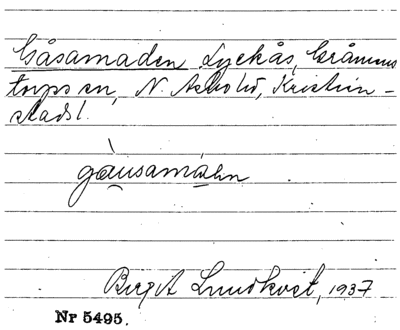 Gåsamaden Lyckås, Gråmans
torps sn, N. Åsbo hd, Kristian-
stads l.
gàusamáhn
Birgit Lundkvist, 1937
Nr 5495.